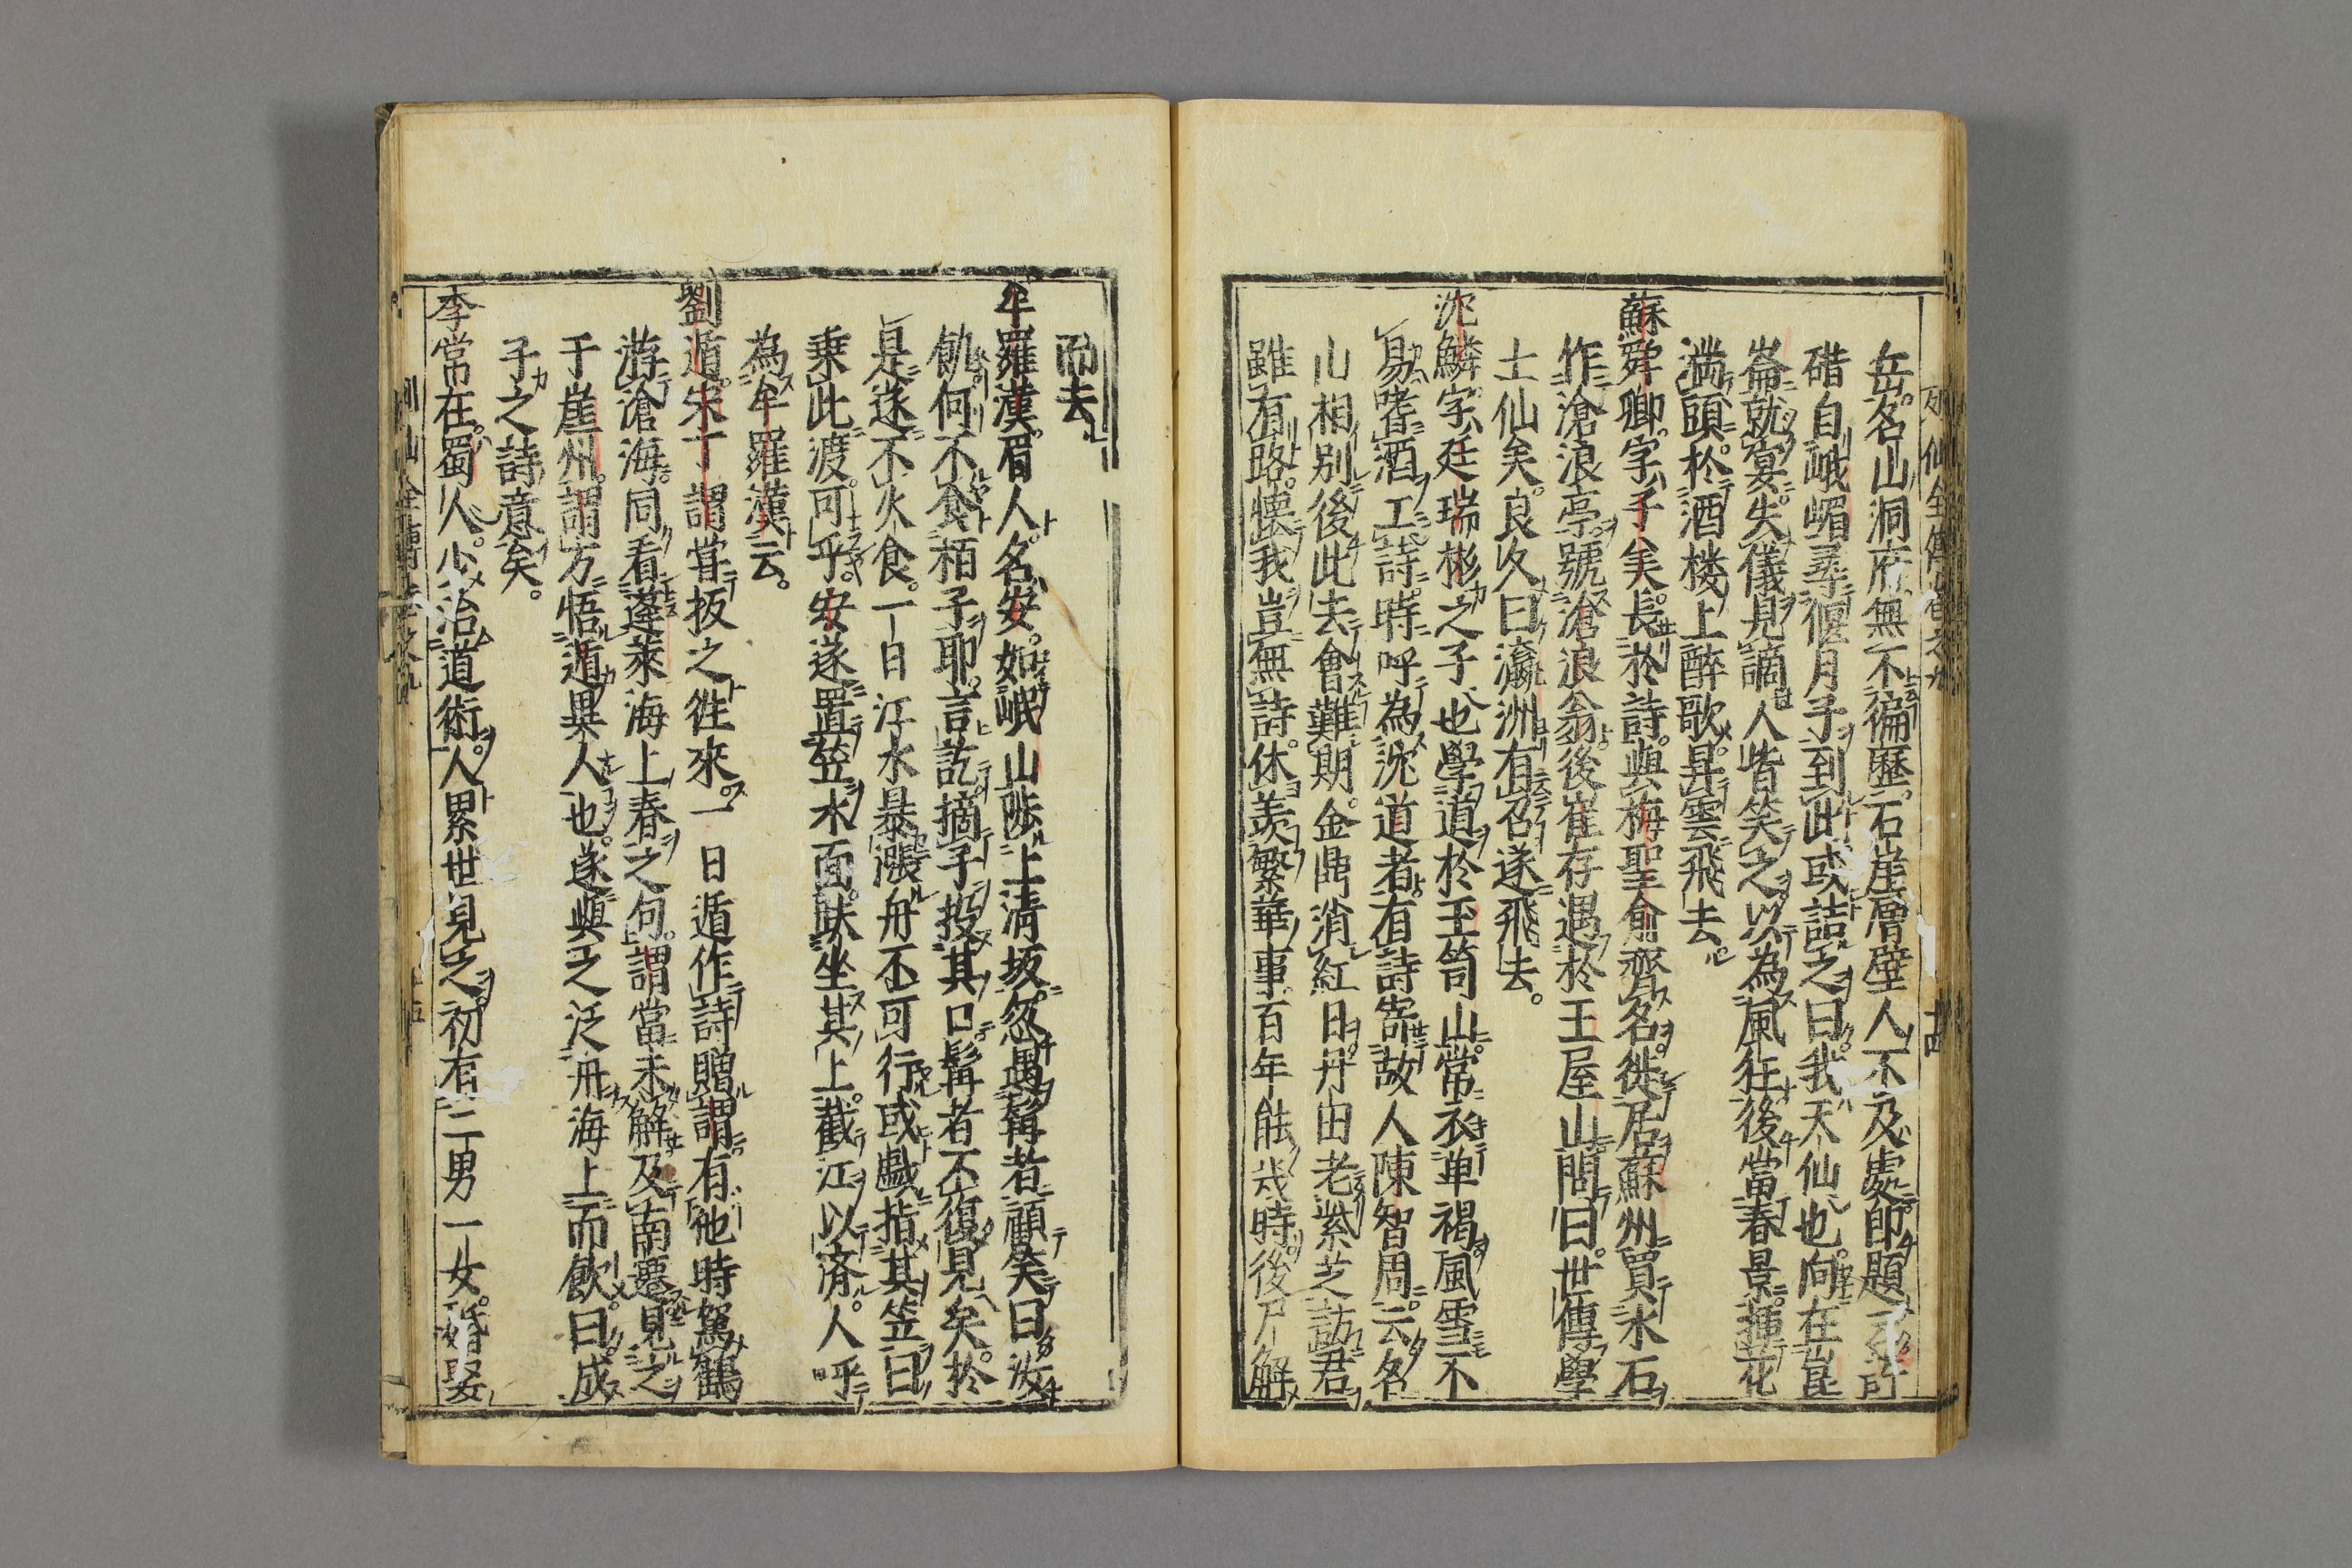 岳名山洞府無不徧歷石崖層壁人不及處即題
碏自峨嵋尋偓月子到此或詰之曰我天仙也向在崑
崙就宴失儀見謫人皆笑之以為風狂後當春景挿花
満頭於酒楼上醉歌昇雲飛去
蘇舜卿字子美長於詩與梅聖俞齊名徙居蘇州買水石
作滄浪亭號滄浪翁後崔存遇於王屋山間曰世傳學
士仙矣良久曰瀛洲有召遂飛去
沈鱗字廷瑞彬之子也學道於玉笥山常衣单褐風雪不
易嗜酒工詩時呼為沈道者有詩寄故人陳智周云名
山相別後此去會難期金鼎消紅日丹田老紫芝訪君
雖有路懐我豈無詩休羨繁華事百年能幾時後尸解
而去
牟羅漢眉人名安如岷山陟上清坂忽遇髯者顧笑曰汝
飢何不食栢子耶言訖摘子投其口髯者不復見矣於
是遂不火食一日江水暴漲舟不可行或戲指其笠曰
乗此渡可乎安遂置笠水面趺坐其上截江以済人呼
為牟羅漢云
劉遁宋丁謂甞扳之徃來一日遁作詩贈謂有他時駕鶴
游滄海同看蓬萊海上春之句謂當未解及南遷見之
于崖州謂方悟遁異人也遂與之泛舟海上而飲曰成
子之詩意矣
李常在蜀人少治道術人累世見之初有二男一女婚娶